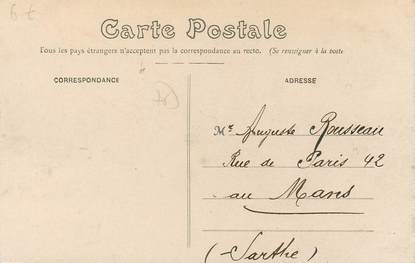 Carte Postale
Tous les pays étrangers n'acceptent pas la correspondance au recto. (Se renseigner à la poste
CORRESPONDANCE
ADRESSE
Mr Auguste Rousseau
Rue de Paris 42
au Mans
(Sarthe)